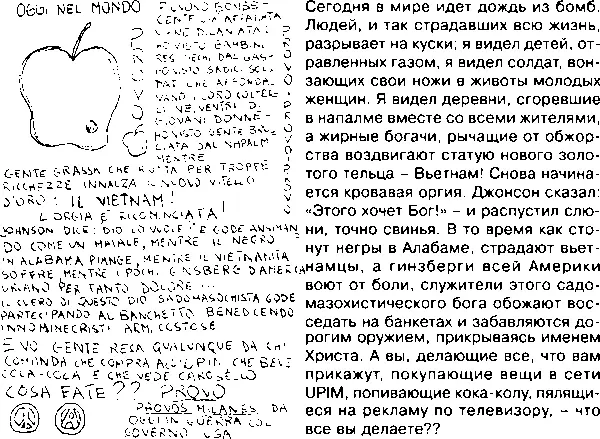 OGGI NEL MONDO
PIOVONO BOMBE-
GENTE
HO VISTO BAMBINI
VANO I LORO COLTEL-
GIOVANI DONNE-
HO VISTO GENTE
DAL NAPALM
MENTRE
GENTE GRASSA CHE RUTTA PER TROPPE
RICCHEZZE INNALZA IL NUOVO VITELLO
D'ORO: IL VIETNAM!
L'ORGIA È RICOMINCIATA!
JOHNSON DICE: DIO LO VUOLE E GODE
DO COME UN MAIALE, MENTRE IL NEGRO
IN ALABAMA PIANGE, MENTRE IL VIETNAMITA
SOFFRE MENTRE I POCHI GINSBERG D'AMERICA
URLANO PER TANTO DOLORE...
IL CLERO DI QUESTO DIO SADOMASOCHISTA GODE
PARTECIPANDO AL BANCHETTO BENEDICENDO
ARMI COSTOSE
E VOI GENTE RESA QUALUNQUE DA CHI
COMANDA CHE COMPRA ALL'UPIM, CHE BEVE
COCA-COLA E CHE VEDE CAROSELLO
COSA FATE?? PROVO
PROVOS MILANES. DA
OGGI IN GUERRA COL
GOVERNO USA
Сегодня в мире идет дождь из бомб.
Людей, и так страдавших всю жизнь,
разрывает на куски; я видел детей, от-
равленных газом, я видел солдат, вон-
зающих свои ножи в животы молодых
женщин. Я видел деревни, сгоревшие
в напалме вместе со всеми жителями,
а жирные богачи, рычащие от обжор-
ства воздвигают статую нового золо-
того тельца – Вьетнам! Снова начина-
ется кровавая оргия. Джонсон сказал:
«Этого хочет Бог!» – и распустил слю-
ни, точно свинья. В то время как сто-
нут негры в Алабаме, страдают вьет-
намцы, а гинзберги всей Америки
воют от боли, служители этого садо-
мазохистического бога обожают вос-
седать на банкетах и забавляются до-
рогим оружием, прикрываясь именем
Христа. А вы, делающие все, что вам
прикажут, покупающие вещи в сети
UPIM, попивающие кока-колу, пялящи-
еся на рекламу по телевизору, – что
все вы делаете??